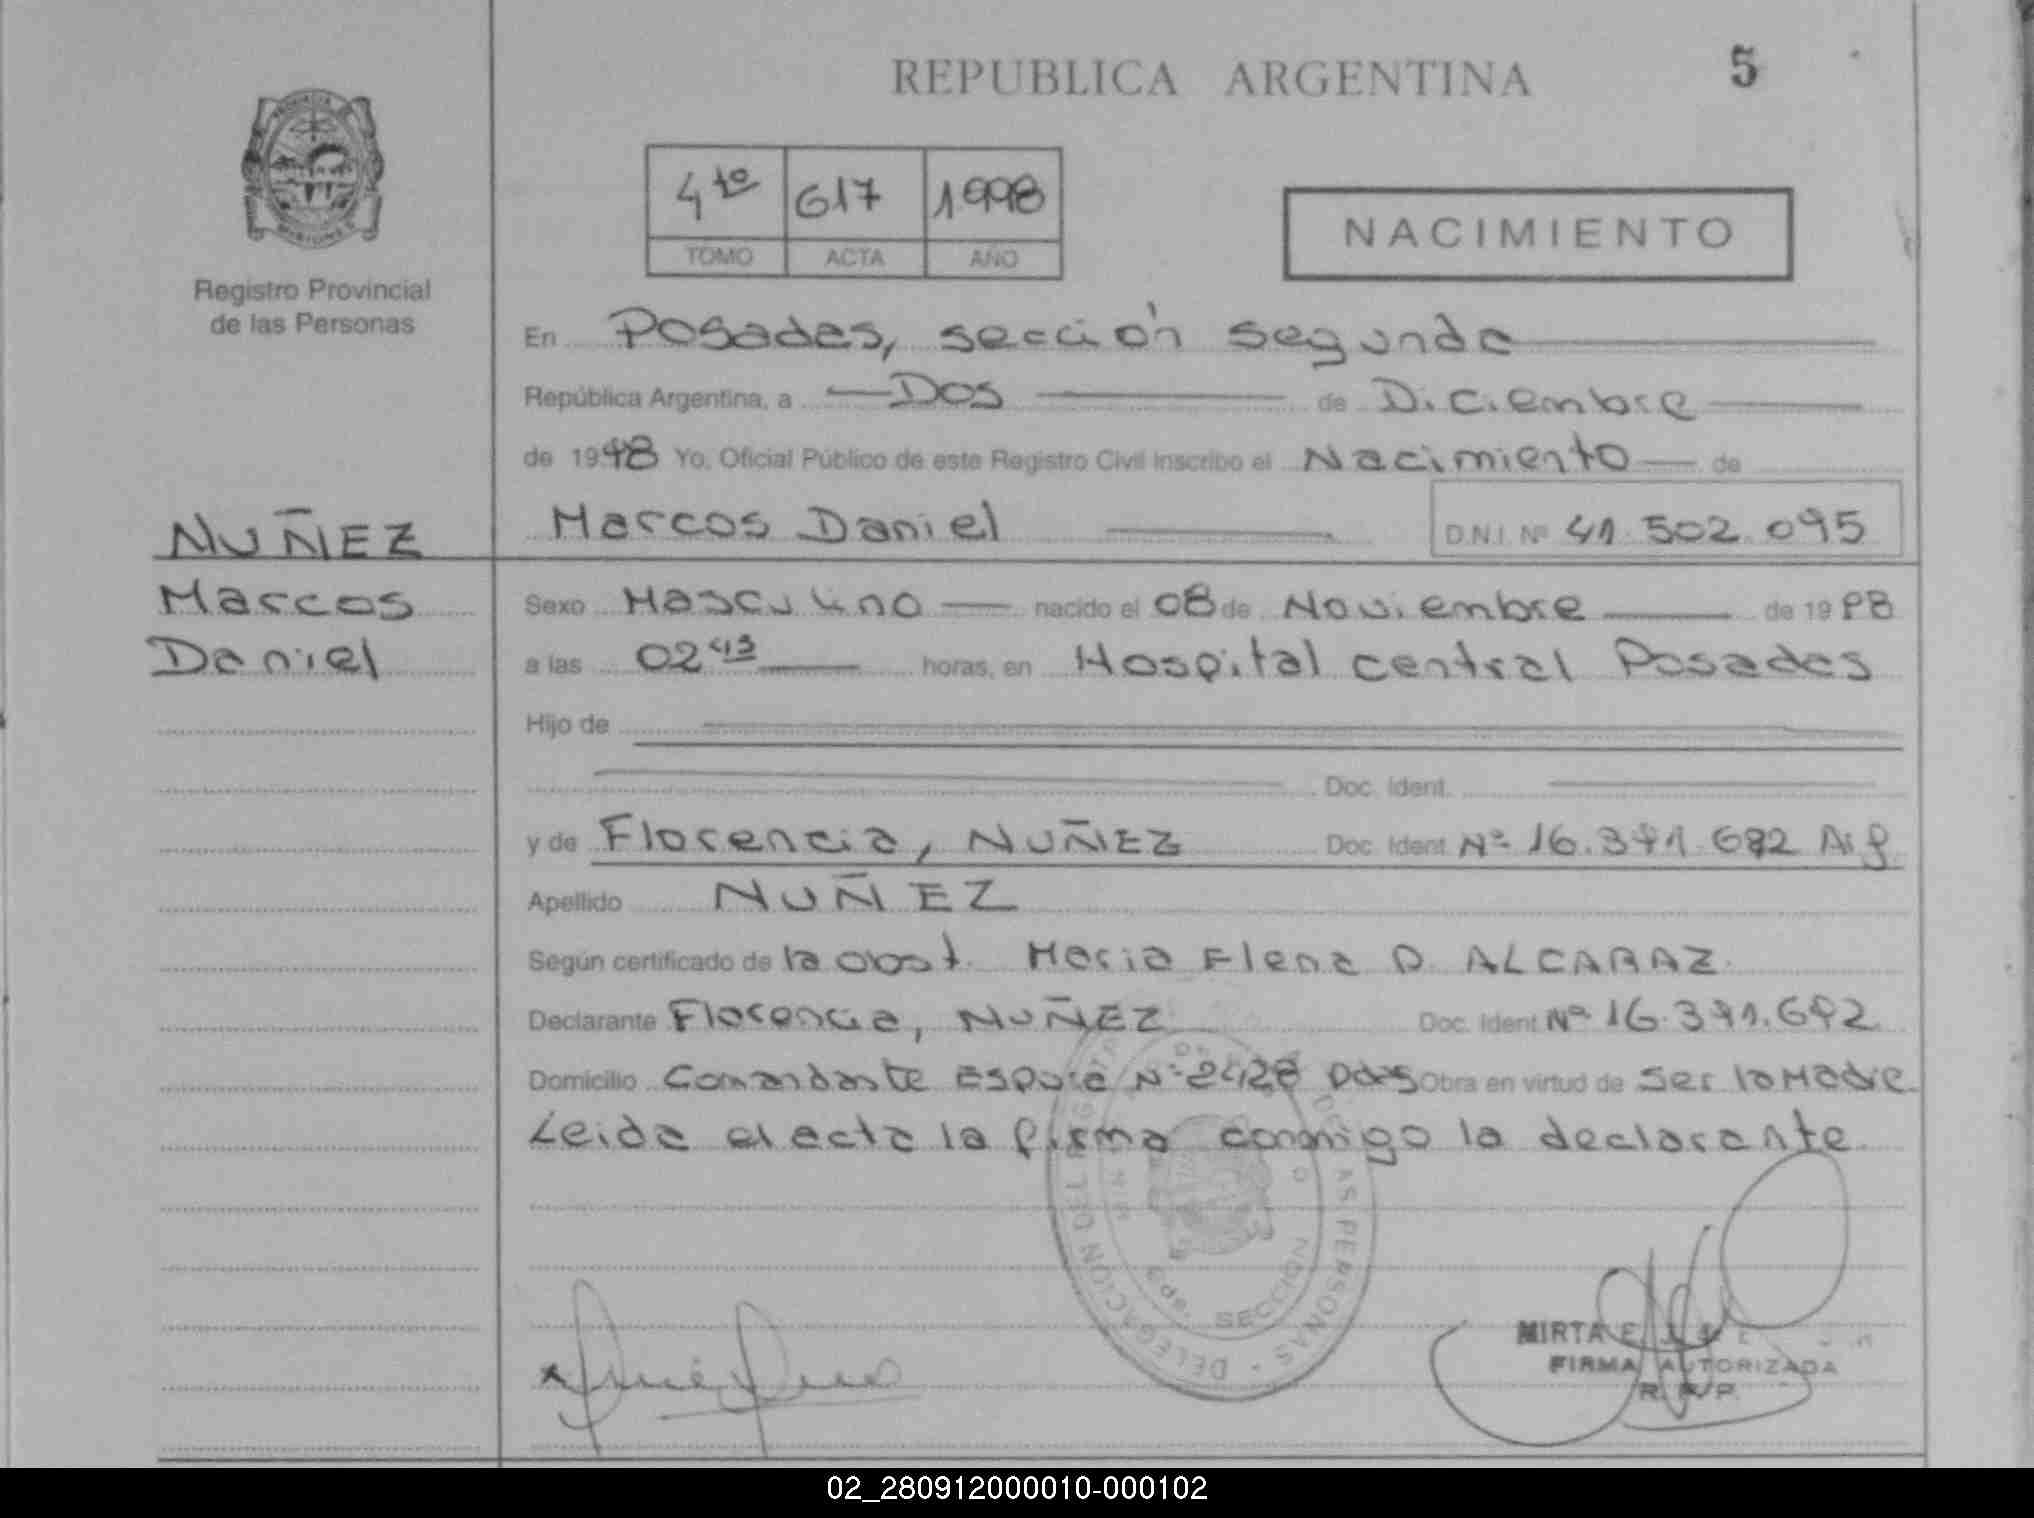 REPUBLICA ARGENTINA
5
4to 617 1998
TOMO ACTA AÑO
NACIMIENTO
Registro Provincial
de las Personas
En Posadas, sección segunda
República Argentina, a Dos de Diciembre
de 1998 Yo, Oficial Público de este Registro Civil inscribo el Nacimiento de
NUÑEZ
Marcos Daniel D.N.I. Nº 41.502.095
Marcos
Sexo Masculino nacido el 08 de Noviembre de 1998
Daniel
a las 02 43 horas, en Hospital central Posadas
Hijo de
Doc. Ident.
y de Florencia, NUÑEZ Doc. Ident. Nº 16.391.692
Apellido NUÑEZ
Según certificado de la obst. Maria Elena D. ALCARAZ.
Declarante Florencia, NUÑEZ Doc. Ident Nº 16.391.692
Domicilio Comandante Nº Obra en virtud de ser la Madre
Leida el acta la firma conmigo la declarante
DELEGACION DEL AS PERSONAS
SECCION
MIRTA E.
FIRMA AUTORIZADA
R. P. P.
02_280912000010-000102